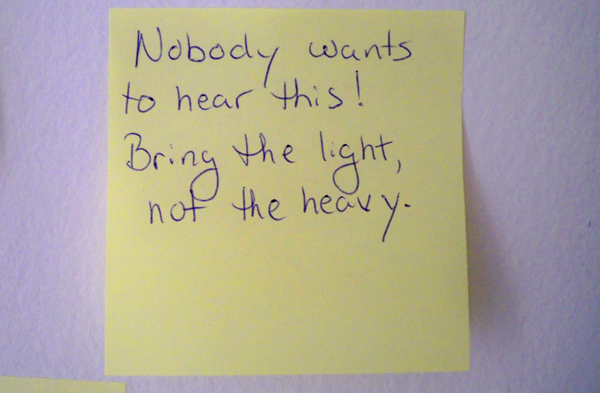 Nobody wants
to hear this!
Bring the light,
not the heavy.